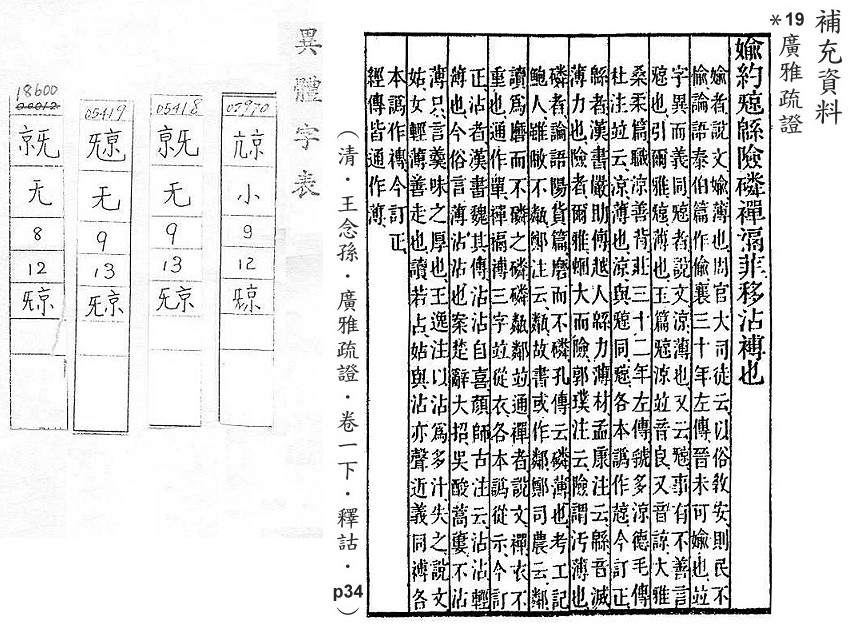 補充資料
*19
廣雅疏證
媮約䫿緜險磷禪漏菲移沾禣也
媮者說文媮薄也周官大司徒云以俗敎安則民不
偷論語泰伯篇作偷襄三十年左傳晉未可媮也竝
字異而義同者說文涼薄也又云事有不善言
也引爾雅薄也玉篇涼竝音良又音諒大雅
桑柔篇職涼善背莊三十二年左傳虢多涼德毛傳
杜注竝云涼薄也涼與同各本譌作今訂正
緜者漢書嚴助傳越人緜力薄材孟康注云緜音滅
薄力也險者爾雅蜠大而險郭璞注云險謂汚薄也
磷者論語陽貨篇磨而不磷孔傳云磷薄也考工記
鮑人雖敝不甐鄭注云甐故書或作鄰鄭司農云鄰
讀爲磨而不磷之磷磷甐鄰竝通禪者說文禪衣不
重也通作單禪禣三字竝從衣各本譌從示今訂
正沾者漢書魏其傳沾沾自喜顏師古注云沾沾輕
薄也今俗言薄沾沾也案楚辭大招吳酸蒿蔞不沾
薄只言羹味之厚也王逸注以沾爲多汁失之說文
姑女輕薄善走也讀若占姑與沾亦聲近義同禣各
本譌作禣今訂正
經傳皆通作薄
(清・王念孫・廣雅疏證・卷一下・釋詁・p34)
異體字表
07970
小
9
12
05418
无
9
13
05419
无
9
13
18600
00012
无
8
12